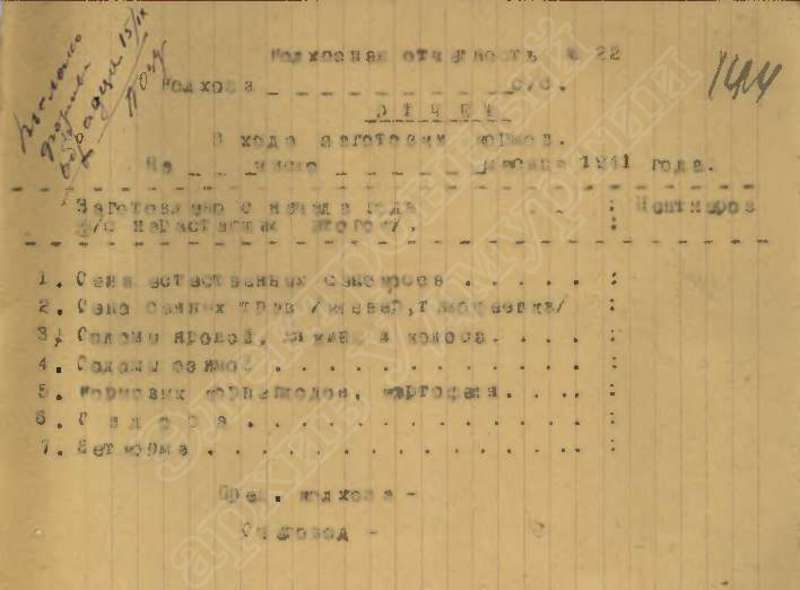 Колхозная отчетность № 22
Колхоза _ _ _ _ _ _ _ _ _ _ с/с.
О Т Ч Е Т
О ходе заготовки кормов.
На _ _ число _ _ _ _ _ _ месяца 1941 года.
Заготовлено с начала года : Центнеров
/с нарастающим итогом/. :
1. Сена естественных сенокосов . . . . . :
2. Сена сеяных трав /клевер, тимофеевка/ :
3. Соломы яровой, мякины и колоса. . . . :
4. Соломы озимой . . . . . . . . . . . . :
5. Кормовых корнеплодов, картофеля. . . . :
6. С и л о с а . . . . . . . . . . . . . :
7. Веткорма . . . . . . . . . . . . . . . :
Пред. колхоза -
Счетовод -
144
15/IX